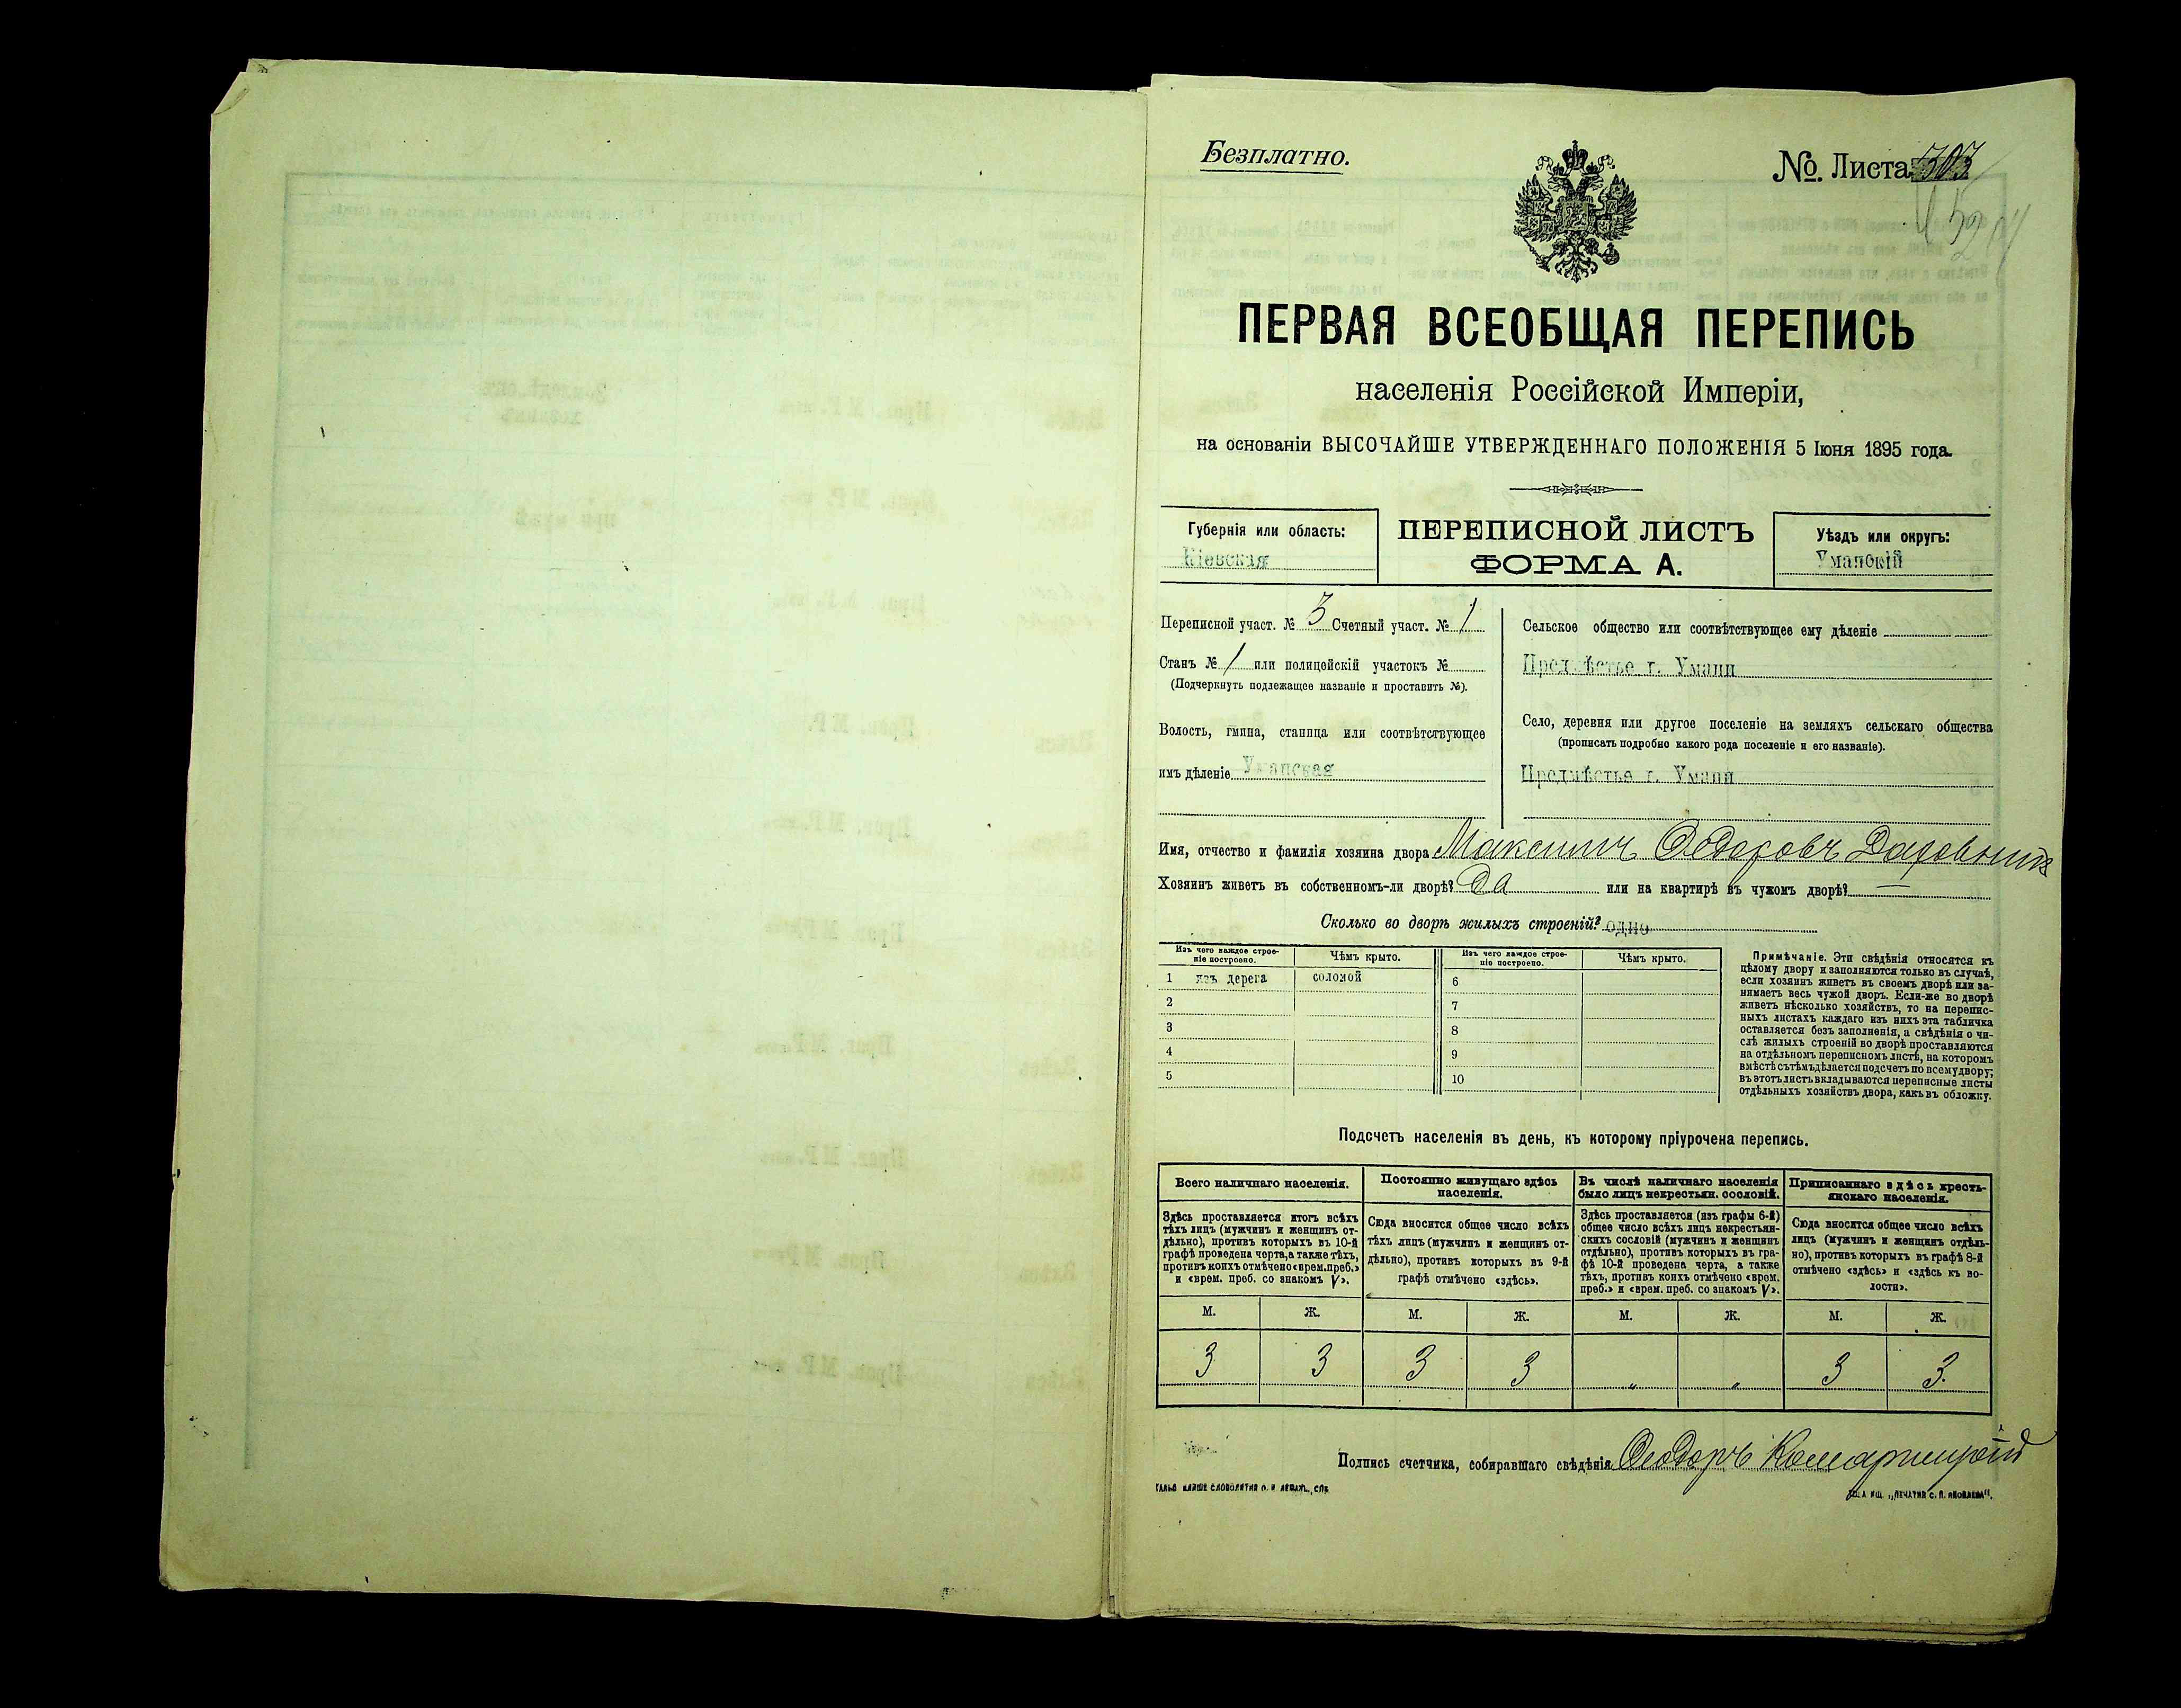 Безплатно.
№. Листа 303
52
ПЕРВАЯ ВСЕОБЩАЯ ПЕРЕПИСЬ
населенія Россійской Имперіи,
на основаніи ВЫСОЧАЙШЕ УТВЕРЖДЕННАГО ПОЛОЖЕНІЯ 5 Іюня 1895 года.
Губернія или область:
Кіевская
ПЕРЕПИСНОЙ ЛИСТЪ
ФОРМА А.
Уѣздъ или округъ:
Уманскій
Переписной участ. № 3 Счетный участ. № 1
Станъ № 1 или полицейскій участокъ №
(Подчеркнуть подлежащее названіе и проставить №).
Волость, гмина, станица или соотвѣтствующее
имъ дѣленіе Уманская
Сельское общество или соотвѣтствующее ему дѣленіе
Предмѣстье г. Умани
Село, деревня или другое поселеніе на земляхъ сельскаго общества
(прописать подробно какого рода поселеніе и его названіе).
Предмѣстье г. Умани
Имя, отчество и фамилія хозяина двора Максимъ Ѳедоровъ
Хозяинъ живетъ въ собственномъ-ли дворѣ? Да или на квартирѣ въ чужомъ дворѣ? —
Сколько во дворѣ жилыхъ строеній? одно
Изъ чего каждое строеніе построено.
Чѣмъ крыто.
Изъ чего каждое строеніе построено.
Чѣмъ крыто.
1 изъ дерева соломой 6
2 7
3 8
4 9
5 10
Примѣчаніе. Эти свѣдѣнія относятся къ
цѣлому двору и заполняются только въ случаѣ,
если хозяинъ живетъ въ своемъ дворѣ или за-
нимаетъ весь чужой дворъ. Если-же во дворѣ
живетъ нѣсколько хозяйствъ, то на перепис-
ныхъ листахъ каждаго изъ нихъ эта табличка
оставляется безъ заполненія, а свѣдѣнія о чи-
слѣ жилыхъ строеній во дворѣ проставляются
на отдѣльномъ переписномъ листѣ, на которомъ
вмѣстѣ съ тѣмъ дѣлается подсчетъ по всему двору;
въ этотъ листъ вкладываются переписные листы
отдѣльныхъ хозяйствъ двора, какъ въ обложку.
Подсчетъ населенія въ день, къ которому пріурочена перепись.
Всего наличнаго населенія.
Здѣсь проставляется итогъ всѣхъ
тѣхъ лицъ (мужчинъ и женщинъ от-
дѣльно), противъ которыхъ въ 10-й
графѣ проведена черта, а также тѣхъ,
противъ коихъ отмѣчено «врем. преб.»
и «врем. преб. со знакомъ V».
Постоянно живущаго здѣсь
населенія.
Сюда вносится общее число всѣхъ
тѣхъ лицъ (мужчинъ и женщинъ от-
дѣльно), противъ которыхъ въ 9-й
графѣ отмѣчено «здѣсь».
Въ числѣ наличнаго населенія
было лицъ некрестьян. сословій.
Здѣсь проставляется (изъ графы 6-й)
общее число всѣхъ лицъ некрестьян-
скихъ сословій (мужчинъ и женщинъ
отдѣльно), противъ которыхъ въ гра-
фѣ 10-й проведена черта, а также
тѣхъ, противъ коихъ отмѣчено «врем.
преб.» и «врем. преб. со знакомъ V».
Приписаннаго здѣсь кресть-
янскаго населенія.
Сюда вносится общее число всѣхъ
лицъ (мужчинъ и женщинъ отдѣль-
но), противъ которыхъ въ графѣ 8-й
отмѣчено «здѣсь» и «здѣсь къ во-
лости».
М. Ж. М. Ж. М. Ж. М. Ж.
3 3 3 3 „ „ 3 3.
Подпись счетчика, собиравшаго свѣдѣнія Ѳеодоръ Комарницкій